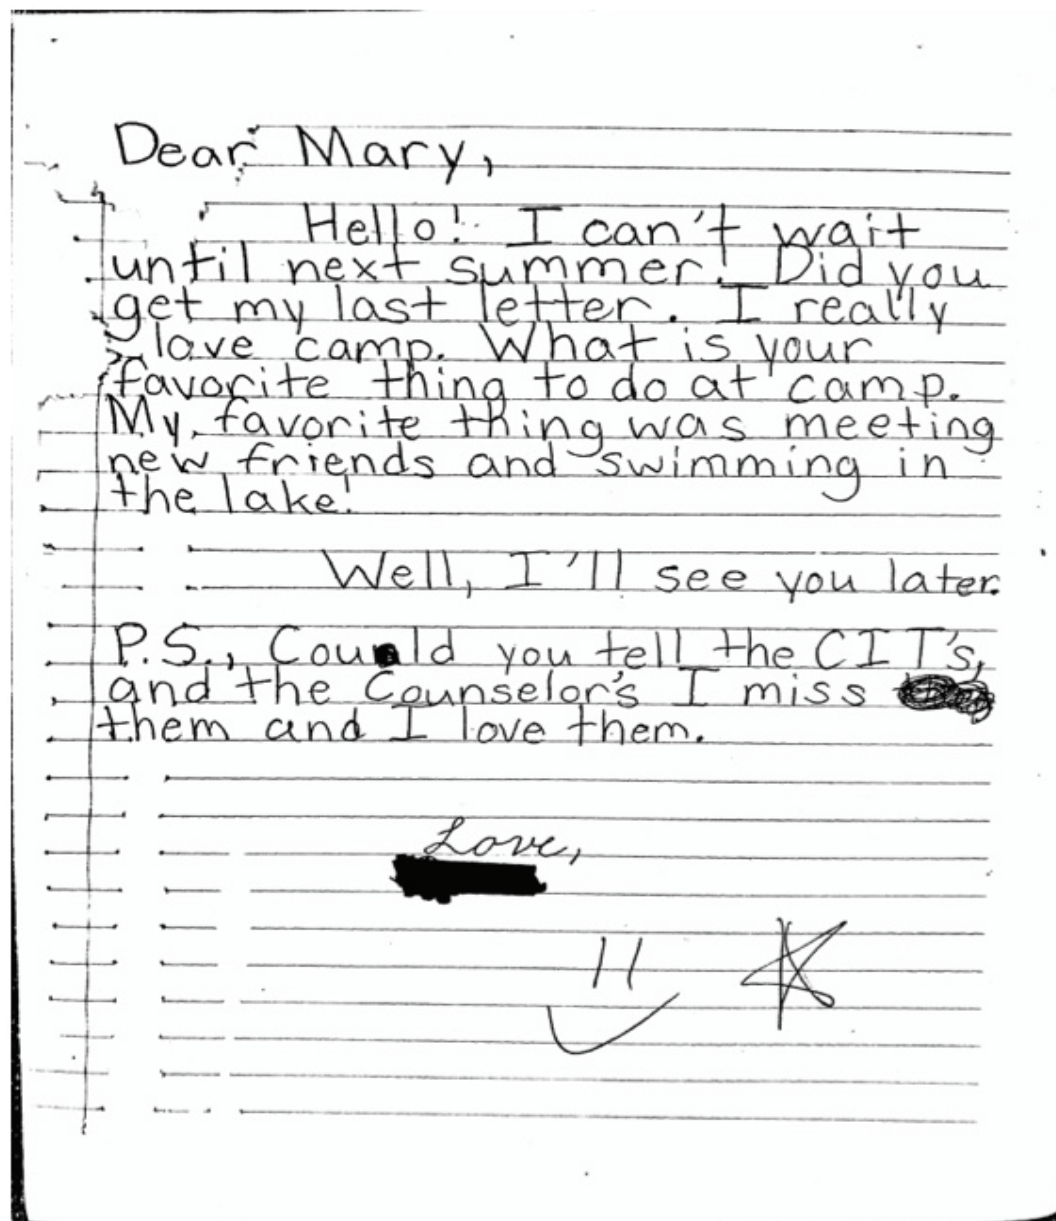 Dear Mary,
Hello! I can't wait
until next summer! Did you
get my last letter. I really
love camp. What is your
favorite thing to do at camp.
My favorite thing was meeting
new friends and swimming in
the lake!
Well, I'll see you later.
P.S., Could you tell the CIT's,
and the Counselor's I miss
them and I love them.
Love,